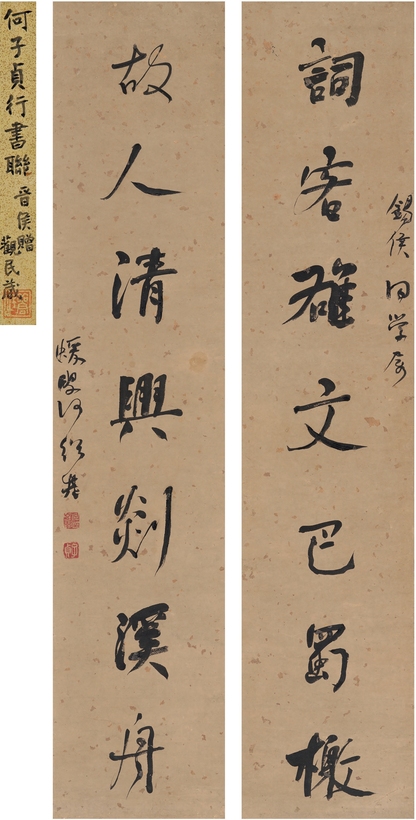 錫侯同學屬
詞客雄文巴蜀檄
故人清興剡溪舟
蝯叟何紹基
何子貞行書聯
晉侯贈
觀民藏